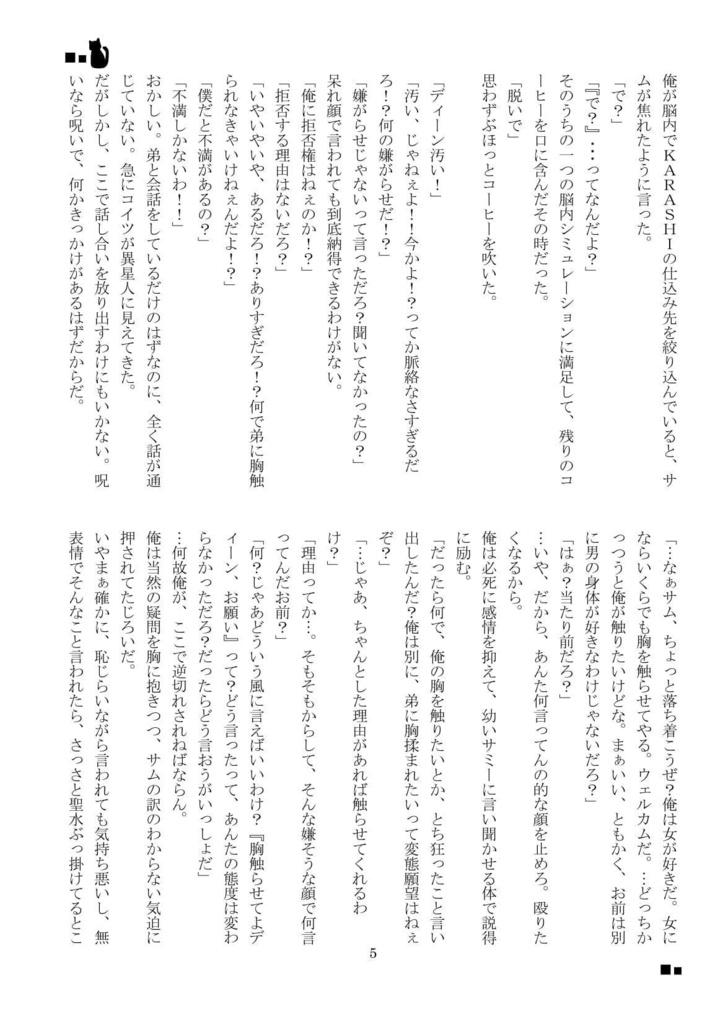 俺が脳内でKARASHIの仕込み先を絞り込んでいると、サ
ムが焦れたように言った。
「で?」
「『で?』・・・ってなんだよ?」
そのうちの一つの脳内シミュレーションに満足して、残りのコ
ーヒーを口に含んだその時だった。
「脱いで」
思わずぶほっとコーヒーを吹いた。
「ディーン汚い!」
「汚い、じゃねぇよ!!今かよ!?ってか脈絡なさすぎるだ
ろ!?何の嫌がらせだ!?」
「嫌がらせじゃないって言っただろ?聞いてなかったの?」
呆れ顔で言われても到底納得できるわけがない。
「俺に拒否権はねぇのか!?」
「拒否する理由はないだろ?」
「いやいやいや、あるだろ!?ありすぎだろ!?何で弟に胸触
られなきゃいけねぇんだよ!?」
「僕だと不満があるの?」
「不満しかないわ!!」
おかしい。弟と会話をしているだけのはずなのに、全く話が通
じていない。急にコイツが異星人に見えてきた。
だがしかし、ここで話し合いを放り出すわけにもいかない。呪
いなら呪いで、何かきっかけがあるはずだからだ。
「…なぁサム、ちょっと落ち着こうぜ?俺は女が好きだ。女に
ならいくらでも胸を触らせてやる。ウェルカムだ。…どっちか
っつうと俺が触りたいけどな。まぁいい、ともかく、お前は別
に男の身体が好きなわけじゃないだろ?」
「はぁ?当たり前だろ?」
…いや、だから、あんた何言ってんの的な顔を止めろ。殴りた
くなるから。
俺は必死に感情を抑えて、幼いサミーに言い聞かせる体で説得
に励む。
「だったら何で、俺の胸を触りたいとか、とち狂ったこと言い
出したんだ?俺は別に、弟に胸揉まれたいって変態願望はねぇ
ぞ?」
「…じゃあ、ちゃんとした理由があれば触らせてくれるわ
け?」
「理由ってか…。そもそもからして、そんな嫌そうな顔で何言
ってんだお前?」
「何?じゃあどういう風に言えばいいわけ?『胸触らせてよデ
ィーン、お願い』って?どう言ったって、あんたの態度は変わ
らなかっただろ?だったらどう言おうがいっしょだ」
…何故俺が、ここで逆切れされねばならん。
俺は当然の疑問を胸に抱きつつ、サムの訳のわからない気迫に
押されてたじろいだ。
いやまぁ確かに、恥じらいながら言われても気持ち悪いし、無
表情でそんなこと言われたら、さっさと聖水ぶっ掛けてるとこ
5